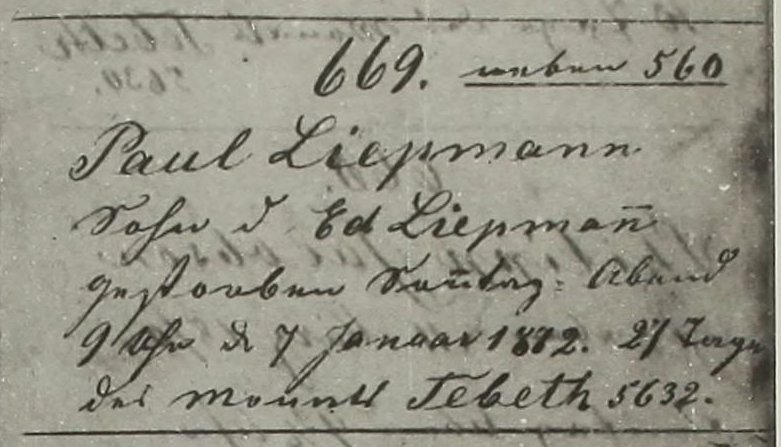 669. neben 560
Paul Liepmann
Sohn d Ed Liepman̄
gestorben Son̄tag-Abend
9 Uhr d 7 Januar 1872. 27 Tage
des Monats Tebeth 5632.